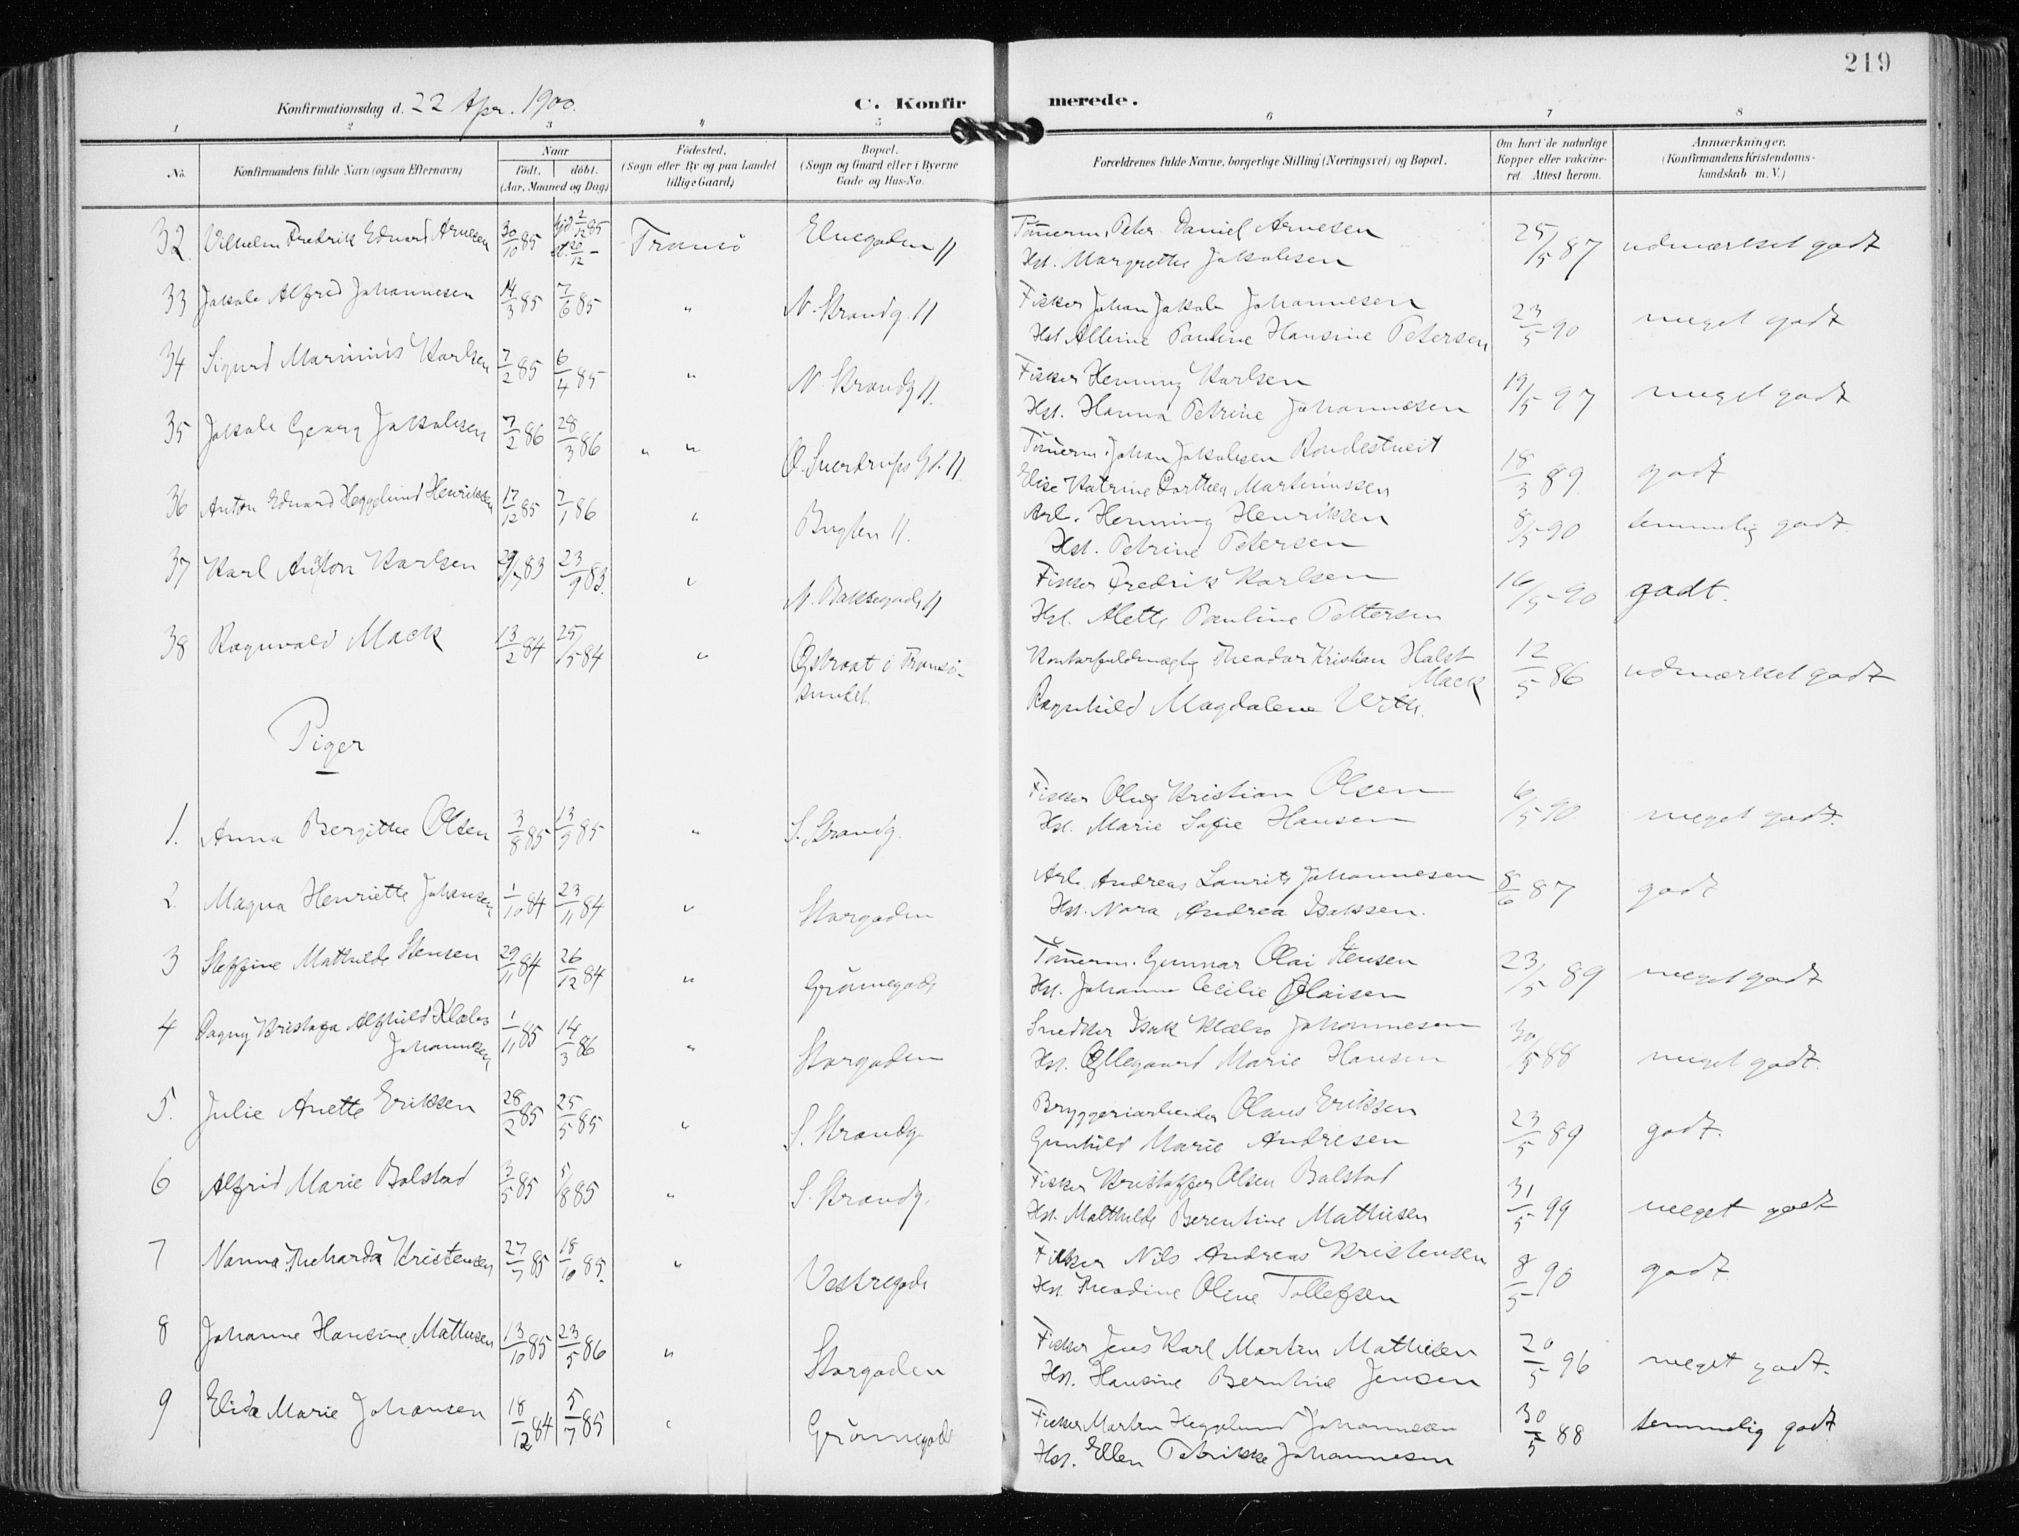 219
Konfirmationsdag d. 22 Apr. 1900.
C. Konfirmerede.
1 2 3 4 5 6 7 8
No. Konfirmandens fulde Navn (ogsaa Efternavn) Naar Født. døbt. (Aar, Maaned og Dag) Fødested. (Sogn eller By og paa Landet tillige Gaard) Bopæl. (Sogn og Gaard eller i Byerne Gade og Hus-No. Forældrenes fulde Navne, borgerlige Stilling (Næringsvei) og Bopæl. Om havt de naturlige Kopper eller vakcineret. Attest herom. Anmærkninger. (Konfirmandens Kristendomskundskab m. V.)
32 Vilhelm Fredrik Eduard Arnesen 30/10 85 Gjd 2/12 85 st. 20/12 - Tromsö Elvegaden 11 Tömerm. Peter Daniel Arnesen 25/5 87 udmærket godt
Hst. Margrethe Jakobsen
33 Jakob Alfred Johannesen 14/3 85 7/6 85 " N. Strandg. 11 Fisker Johan Jakob Johannesen 23/5 90 meget godt
Hst. Albine Pauline Hansine Petersen
34 Sigurd Marinius Karlsen 7/2 85 6/4 85 " N. Strandg 11. Fisker Henning Karlsen 19/5 97 meget godt
Hst. Hanna Petrine Johannesen
35 Jakob Georg Jakobsen 7/2 86 28/3 86 " " O. Sverdrups Gd. 11 Tömerm. Johan Jakobsen Rondestveit 18/3 89 godt
Elise Katrine Dorthea Martinussen
36 Anton Eduard Hegglund Henriksen 17/12 85 7/1 86 " Bugten 11. Arb. Henning Henriksen 8/5 90 temmelig godt.
Hst. Petrine Petersen
37 Karl Anton Karlsen 29/7 83 23/9 83. " N. Bakkegade 11 Fisker Fredrik Karlsen 16/5 90 godt.
Hst. Alette Pauline Pettersen
38 Ragnvald Mack 13/2 84 25/5 84 " Østraat i Tromsö- Kontorfuldmægtig Theodor Kristian Holst 12/5 86 udmærket godt
sundet. Mack
Ragnhild Magdalene
Piger
1. Anna Bergithe Olsen 3/8 85 13/9 85 " S. Strandg. Fisker Oluf Kristian Olsen 6/5 90 meget godt.
Hst. Marie Sofie Hansen
2. Magna Henriette Johansen 1/10 84 23/11 84 " Storgaden Arb. Andreas Laurits Johannesen 8/6 87 godt
Hst. Nora Andrea Isaksen.
3 Steffine Mathilde Stensen 29/11 84 26/12 84 " Grönnegade Tömerm. Gunnar Olai Stensen 23/5 89 meget godt
Hst. Johanna Cecilie Olaisen
4 Dagny Kristofa Alfhild Klæbo 1/11 85 14/3 86 " Storgaden Snedker Isak Klæbo Johannesen 30/5 88 meget godt.
Johannesen Hst. Ollegaard Marie Hansen
5. Julie Anette Eriksen 28/2 85 25/5 85 " S. Strandg. Bryggeriarbeider Olaus Eriksen 23/5 89 godt.
Gunhild Marie Andresen
6 Alfrid Marie Bolstad 3/5 85 5/8 85 " S. Strandg. Fisker Kristoffer Olsen Bolstad 31/5 99 meget godt
Hst. Matthilde Berentine Mathisen
7 Nanna Richarda Kristensen 27/7 85 18/10 85. " Vestregade Fisker Nils Andreas Kristensen 8/5 90 godt.
Hst. Theodine Oline Tollefsen
8 Johanne Hansine Mathisen 13/10 85 23/5 86 " Storgaden Fisker Jens Karl Martin Mathisen 20/5 96 meget godt.
Hst. Hansine Berntine Jensen
9 Elida Marie Johansen 18/12 84 5/7 85 " Grönnegade Fisker Martin Hegglund Johannesen 30/5 88 temmelig godt.
Hst. Ellen Petrikke Johannesen